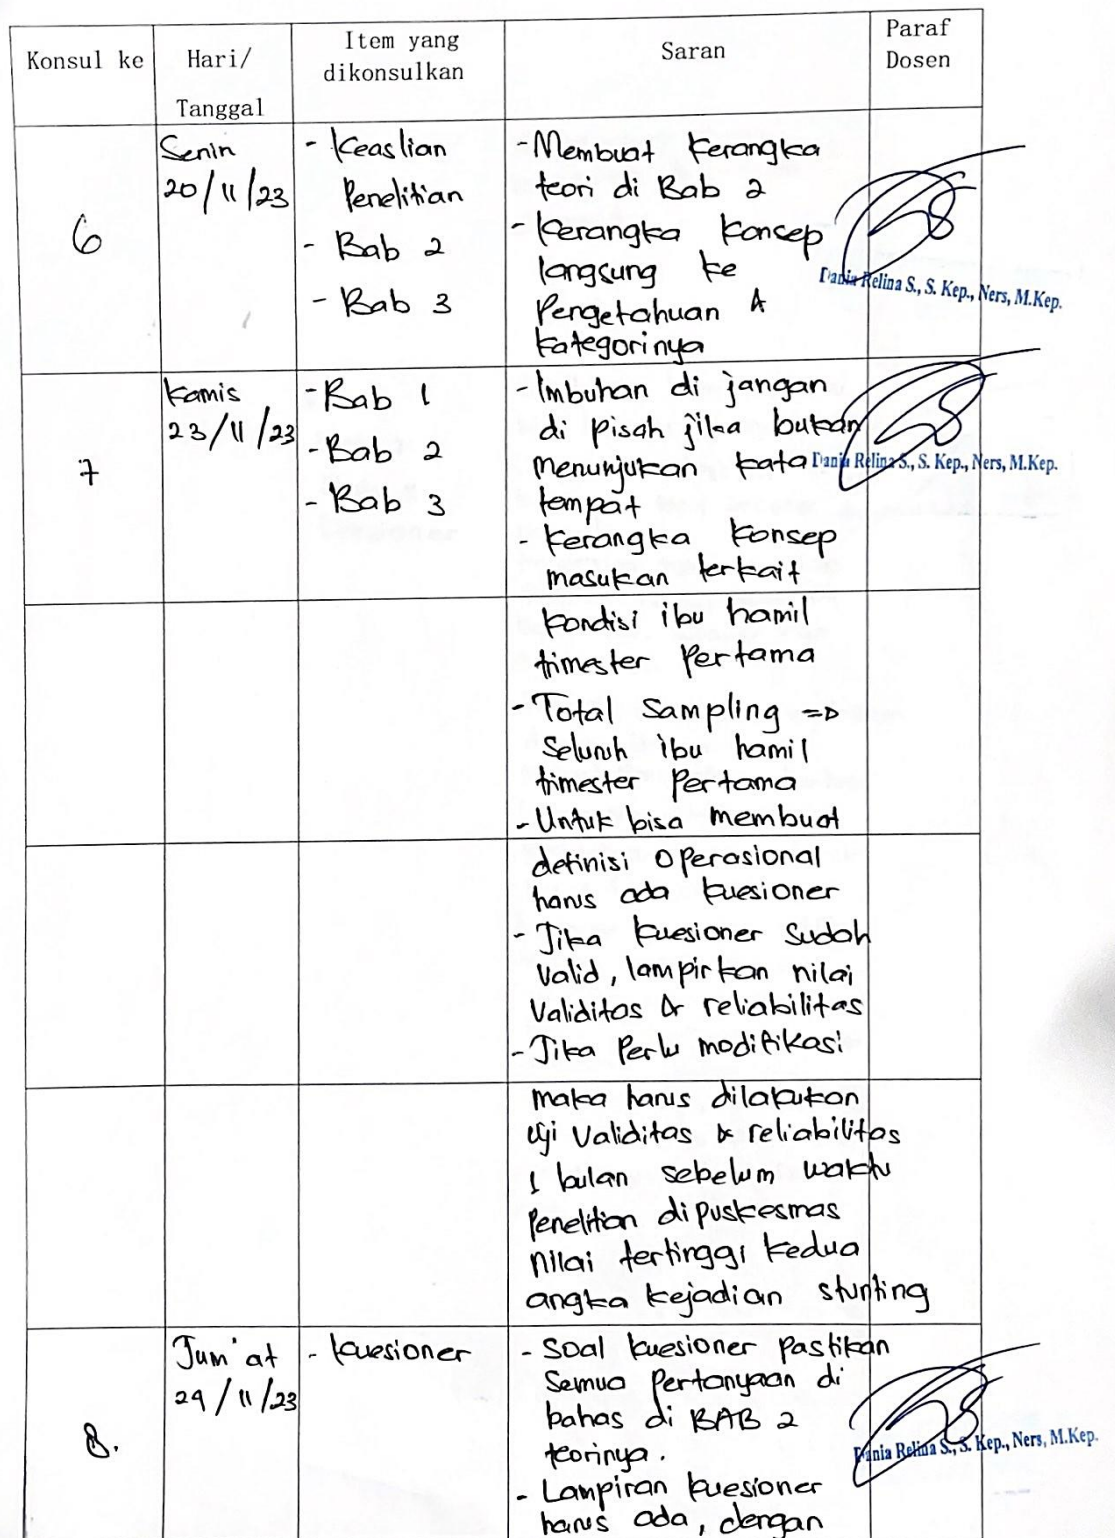 Konsul ke
Hari/
Tanggal
Item yang
dikonsulkan
Saran
Paraf
Dosen
6
Senin
20/11/23
- Keaslian
Penelitian
- Bab 2
- Bab 3
- Membuat kerangka
teori di Bab 2
- Kerangka konsep
langsung ke
Pengetahuan &
kategorinya
Dania Relina S., S. Kep., Ners, M.Kep.
7
Kamis
23/11/23
- Bab 1
- Bab 2
- Bab 3
- Imbuhan di jangan
di pisah jika bukan
menunjukan kata
tempat
- Kerangka konsep
masukan terkait
Dania Relina S., S. Kep., Ners, M.Kep.
kondisi ibu hamil
trimester Pertama
- Total Sampling =>
Seluruh ibu hamil
trimester Pertama
- Untuk bisa membuat
definisi operasional
harus ada kuesioner
- Jika kuesioner sudah
valid, lampirkan nilai
Validitas & reliabilitas
- Jika Perlu modifikasi
maka harus dilakukan
uji Validitas & reliabilitas
1 bulan sebelum waktu
Penelitian di puskesmas
nilai tertinggi kedua
angka kejadian stunting
8.
Jum'at
24/11/23
- kuesioner
- Soal kuesioner Pastikan
Semua Pertanyaan di
bahas di BAB 2
teorinya.
- Lampiran kuesioner
harus ada, dengan
Dania Relina S., S. Kep., Ners, M.Kep.